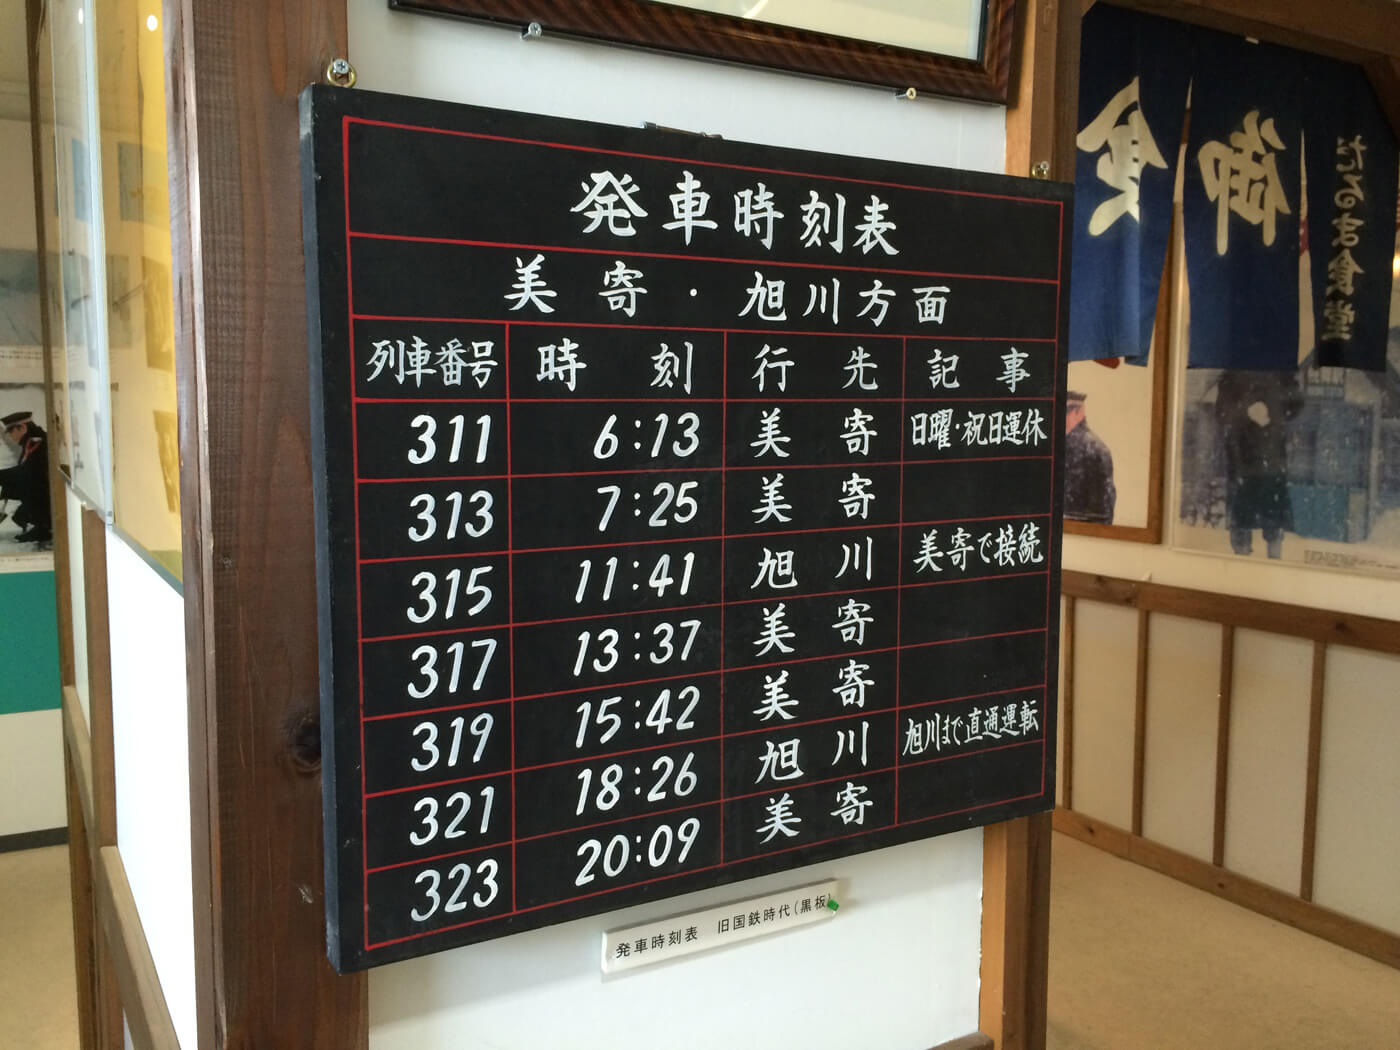 発車時刻表
美寄・旭川方面
列車番号 時刻 行先 記事
311 6:13 美寄 日曜・祝日運休
313 7:25 美寄
315 11:41 旭川 美寄で接続
317 13:37 美寄
319 15:42 美寄
321 18:26 旭川 旭川まで直通運転
323 20:09 美寄
発車時刻表 旧国鉄時代(黒板)
だるま食堂
御
食